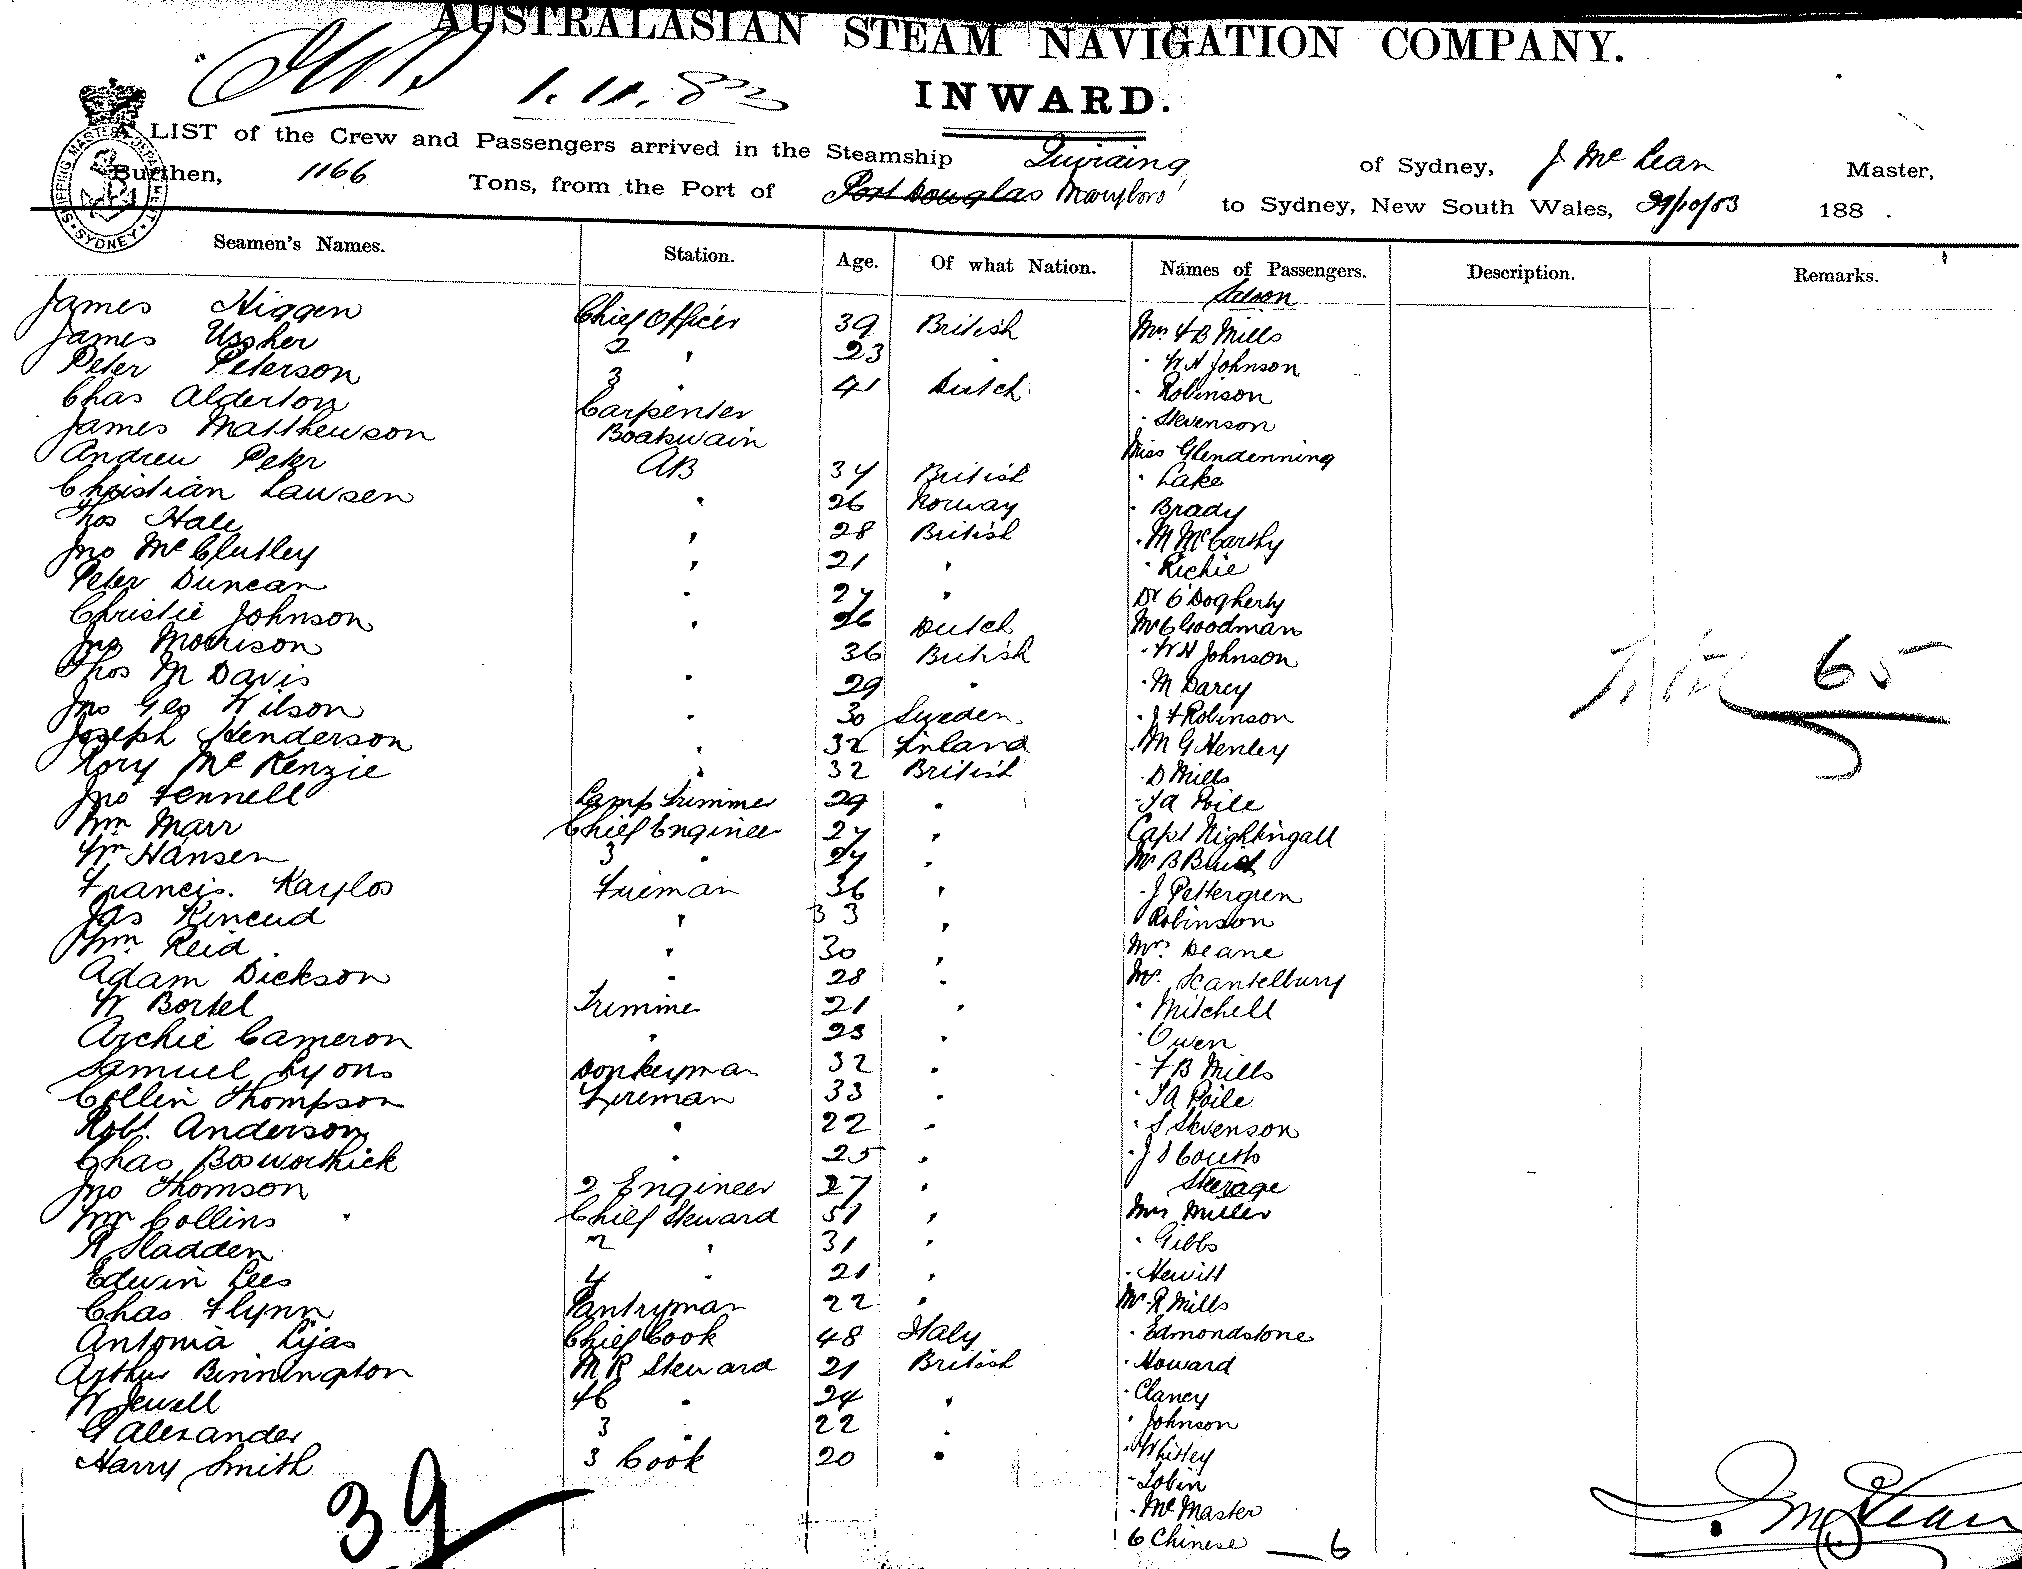 AUSTRALASIAN STEAM NAVIGATION COMPANY.
1.11.83
INWARD.
A LIST of the Crew and Passengers arrived in the Steamship Quiraing of Sydney, J McLean Master,
Burthen, 1166 Tons, from the Port of Port Douglas Maryboro' to Sydney, New South Wales, 29/10/83 188 .
SHIPPING MASTER DEPARTMENT SYDNEY
Seamen's Names. Station. Age. Of what Nation. Names of Passengers. Description. Remarks.
Saloon
James Higgen Chief Officer 39 British Mrs F B Mills
James Ussher 2 " 23 " " W H Johnson
Peter Peterson 3 " 41 Dutch " Robinson
Chas Alderton Carpenter " Stevenson
James Matthewson Boatswain Miss Glendenning
Andrew Peter AB 34 British " Lake
Christian Lawsen " 26 Norway " Brady
Thos Hale " 28 British " M McCarthy
Jno McClutley " 21 " " Richie
Peter Duncan " 27 " Dr O'Dogherty
Christie Johnson " 26 Dutch Mr C Goodman
Jno Morrison 36 British " W H Johnson
Thos M Davis " 29 " " M Darcy
Jno Geo Wilson " 30 Sweden " J F Robinson
Joseph Henderson " 32 Finland " M G Henley
Rory McKenzie " 32 British " D Mills
Jno Fennell Lamp Trimmer 29 " " T A Poile
Wm Marr Chief Engineer 27 " Capt Nightingall
Wm Hansen 3 " 27 " Mr B
Francis Kaylos Fireman 36 " " J Pettergren
Jas Kincud " 33 " " Robinson
Wm Reid " 30 " Mrs Deane
Adam Dickson " 28 " Mr Scantelbury
W Bortel Trimmer 21 " " Mitchell
Archie Cameron " 23 " " Owen
Samuel Lyons Donkeyman 32 " " F B Mills
Collin Thompson Fireman 33 " " T A Poile
Robt Anderson " 22 " " S Stevenson
Chas Bosworthick " 25 " " J S Couth
Jno Thomson 2 Engineer 27 " Steerage
Wm Collins Chief Steward 51 " Mrs Miller
R Sladden 2 " 31 " " Gibbs
Edwin Lees 4 " 21 " " Hewitt
Chas Flynn Pantryman 22 " Mr R Mills
Antonia Lijas Chief Cook 48 Italy " Edmondstone
Arthur Binnington M R Steward 21 British " Howard
W Jewell FC " 24 " " Clancy
G Alexander 3 " 22 " " Johnson
Harry Smith 3 Cook 20 " " Whitley
" Tobin
" McMaster
6 Chinese — 6
39
Total 65
J McLean